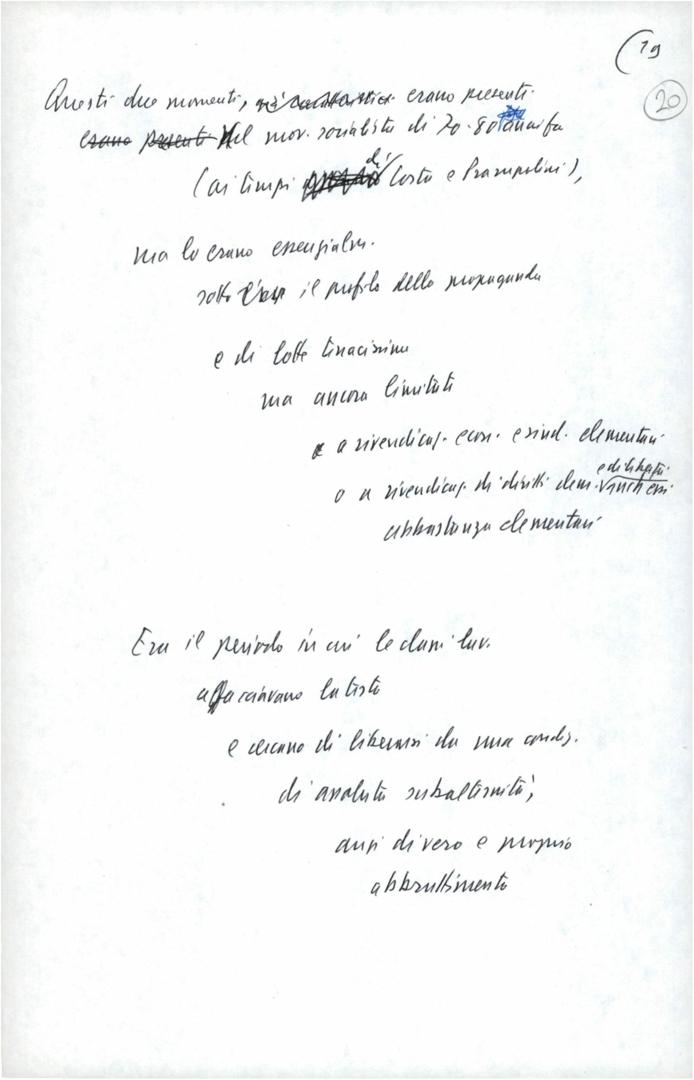 (19
20
Questi due momenti, erano presenti
erano presenti Nel mov. socialista di 70-80 anni fa
(ai tempi di Costa e Prampolini),
ma lo erano essenzialm.
sotto il profilo della propaganda
e di lotte tenacissime
ma ancora limitate
a rivendicaz. econ. e sind. elementari
e di libertà
o a rivendicaz. di diritti dem. anch'essi
abbastanza elementari
Era il periodo in cui le classi lav.
affacciavano la testa
e cercano di liberarsi da una condiz.
di assoluta subalternità,
anzi di vero e proprio
abbrutimento